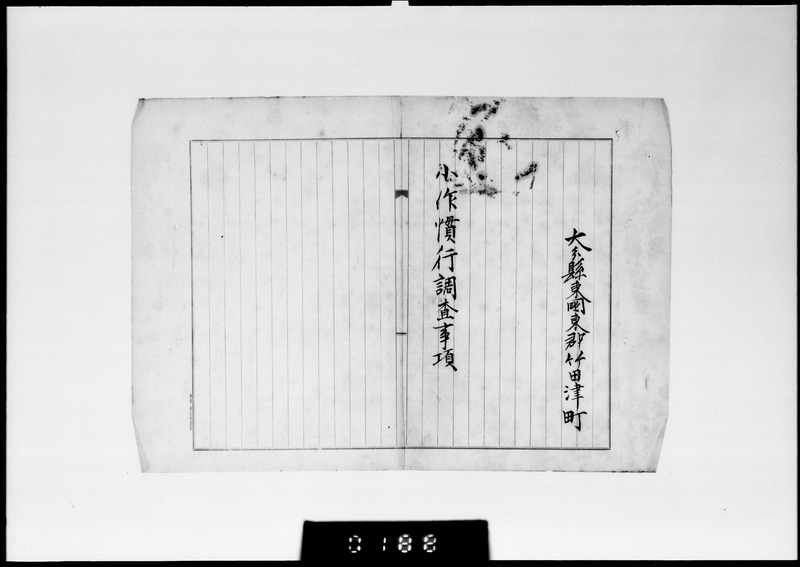 大分縣東國東郡竹田津町
小作慣行調査事項
0188